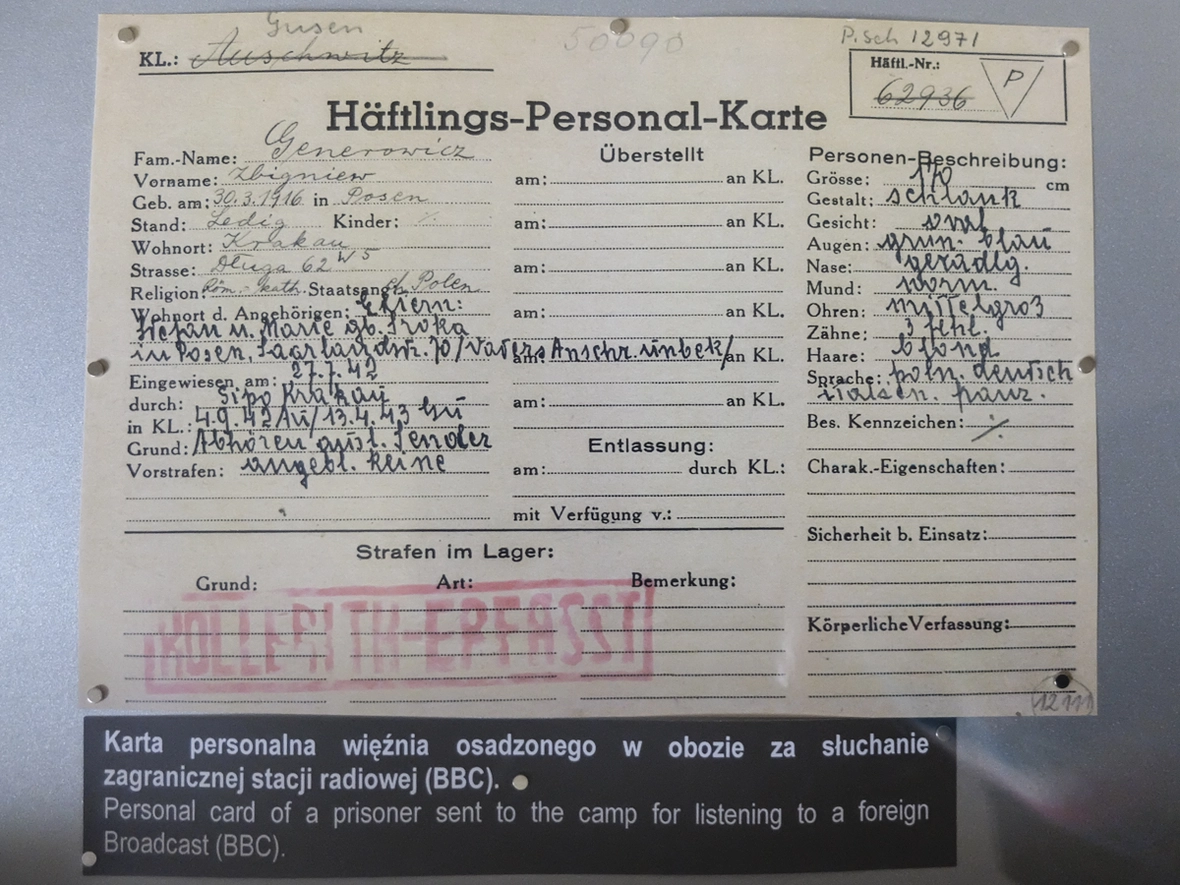 Gusen
50090
P.sch 12971
KL.: Auschwitz
Häftl.-Nr.:
62936
P
Häftlings-Personal-Karte
Fam.-Name: Generowicz
Vorname: Zbigniew
Geb. am: 30.3.1916 in Posen
Stand: Ledig Kinder: ·/.
Wohnort: Krakau
Strasse: Długa 62 W 5
Religion: Röm.-kath. Staatsang. Polen
Wohnort d. Angehörigen: Eltern:
Stefan u. Marie gb.
in Posen, 70/Vaters Anschr. unbek/
Eingewiesen am: 27.7.42
durch: Sipo Krakau
in KL.: 4.9.42 Au/13.4.43 Gu
Grund: Abhören ausl. Sender
Vorstrafen: angebl. keine
Überstellt
am: an KL.
am: an KL.
am: an KL.
am: an KL.
am: an KL.
am: an KL.
Entlassung:
am: durch KL.:
mit Verfügung v.:
Personen-Beschreibung:
Grösse: 170 cm
Gestalt: schlank
Gesicht: oval
Augen: grün. blau
Nase: geradlg.
Mund: norm.
Ohren: mittelgroß
Zähne: 3 fehl.
Haare: blond
Sprache: poln. deutsch
italien. franz.
Bes. Kennzeichen: ·/.
Charak.-Eigenschaften:
Sicherheit b. Einsatz:
Körperliche Verfassung:
Strafen im Lager:
Grund: Art: Bemerkung:
HOLLERITH-ERFASST
12111
Karta personalna więźnia osadzonego w obozie za słuchanie
zagranicznej stacji radiowej (BBC).
Personal card of a prisoner sent to the camp for listening to a foreign
Broadcast (BBC).